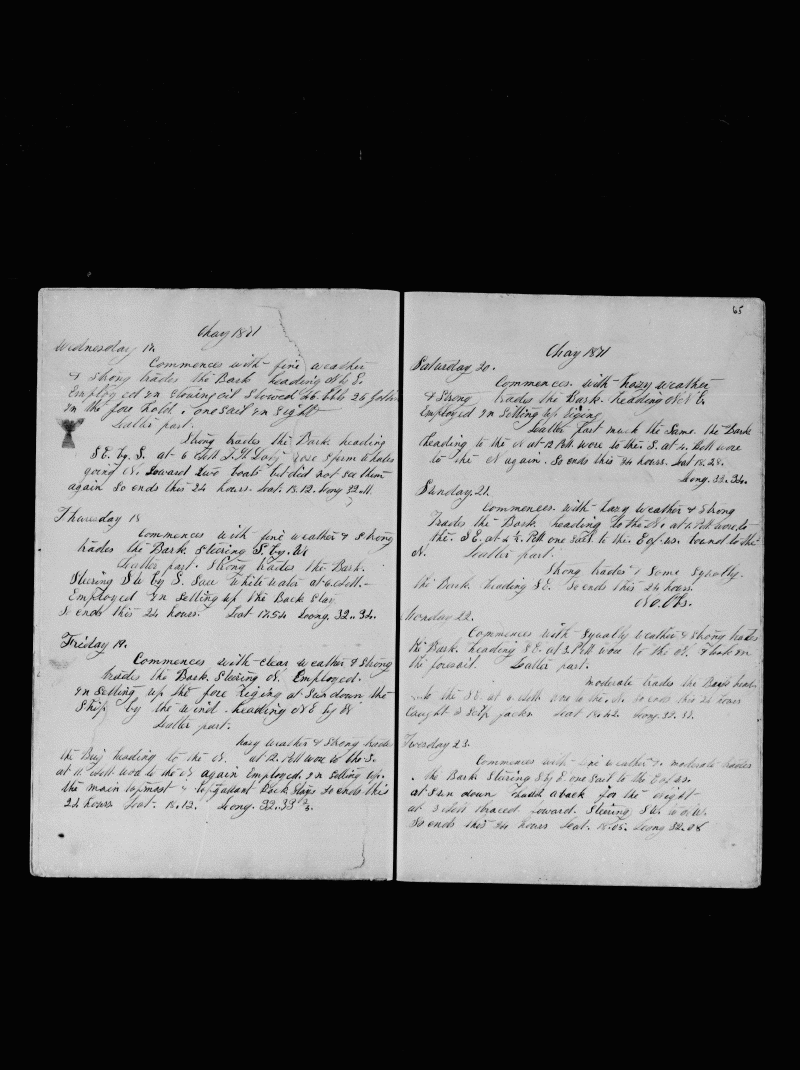 May 1871
Wednesday 17.
Commences with fine weather
& strong trades the Bark heading N by E.
Employed in stowing oil stowed 26 bbls 26 gallon
in the fore hold. one sail in sight
Latter part.
Strong trades the Bark heading
S E. by. S. at 6 AM rose sperm whales
going N. Lowered two boats but did not see them
again So ends this 24 hours. Lat. 18.12. Long 32.11.
Thursday 18
Commences with fine weather & strong
trades the Bark Steering S. by. W.
Latter part. Strong trades the Bark.
Steering S W by S. Saw white water at 6. AM. –
Employed in Setting up the Back Stay
So ends this 24 hours. Lat 17.54 Loong. 32..34.
Friday 19.
Commences with clear weather & Strong
trades the Bark. Steering N. Employed.
in setting up the fore riging at sun down the
Ship by the wind. heading N E by N
Latter part.
hazy weather & Strong trades
the Brig heading to the N. at 12. PM wore to the S.
at 4. AM wore to the N again Employed in setting up.
the main topmast & topgallant Back Stays So ends this
24 hours. Lat. 18.12. Long. 32..33
65
May 1871
Saturday 20.
Commences. with hazy weather
& Strong trades the Bark. heading N N E.
Employed in setting up riging
Latter Part much the Same. the Bark
heading to the N at 12 PM. wore to the S. at 4. AM wore
to the N again. So ends this 24 hours. Lat 18.28.
Long. 32..34.
Sunday. 21.
Commences. with hazy weather & Strong
Trades the Bark heading to the N. at 1. PM wore, to
the. S E. at 4 PM one sail to the. E of us. bound to the
N. Latter part.
Strong trades & Some squally.
the Bark. heading S E. So ends this 24 hours.
No. Obs.
Monday 22.
Commences with squally weather & strong trades
the Bark. heading S E. at 3. PM wore to the N. & took in
the foresail. Latter part.
moderate trades the Bark head.
to the S E. at 6. AM wore to the. N. So ends this 24 hours
Caught 2 skip jacks Lat 18.42. Long. 32. 33.
Tuesday 23.
Commences with fine weather & moderate trades
the Bark Steering S by E. one sail to the E of us.
at sun down hauld aback for the night
at 5 AM braced foward. Steering S W. to W.
So ends this 24 hours Lat. 18.05. Loong 32..08